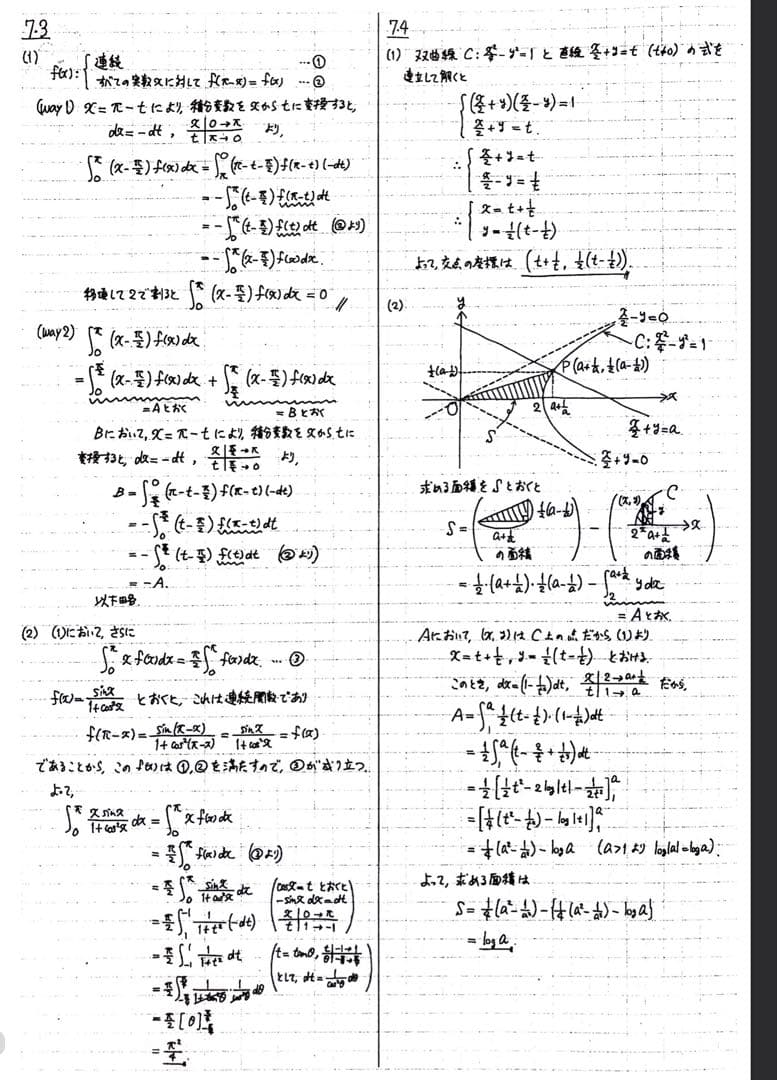 7.3
(1)
f(x): { 連続 …①
すべての実数xに対して f(π-x)=f(x) …②
(way1) x=π-t により, 積分変数をxからtに変換すると,
dx=-dt, x|0→π
t|π→0 より,
∫₀^π (x-π/2)f(x)dx = ∫_π^0 (π-t-π/2)f(π-t)(-dt)
= -∫₀^π (t-π/2)f(π-t)dt
= -∫₀^π (t-π/2)f(t)dt (②より)
= -∫₀^π (x-π/2)f(x)dx.
移項して2で割ると ∫₀^π (x-π/2)f(x)dx = 0 //
(way2) ∫₀^π (x-π/2)f(x)dx
= ∫₀^{π/2} (x-π/2)f(x)dx + ∫_{π/2}^π (x-π/2)f(x)dx
=Aとおく =Bとおく
Bにおいて, x=π-t により, 積分変数をxからtに
変換すると, dx=-dt, x|π/2→π
t|π/2→0 より,
B = ∫_{π/2}^0 (π-t-π/2)f(π-t)(-dt)
= -∫₀^{π/2} (t-π/2)f(π-t)dt
= -∫₀^{π/2} (t-π/2)f(t)dt (②より)
= -A.
以下略.
(2) (1)において, さらに
∫₀^π x f(x)dx = π/2 ∫₀^π f(x)dx. …③
f(x)=sinx/(1+cos²x) とおくと, これは連続関数であり
f(π-x)=sin(π-x)/(1+cos²(π-x))=sinx/(1+cos²x)=f(x)
であることから, この f(x)は①,②を満たすので, ③が成り立つ.
よって,
∫₀^π x sinx/(1+cos²x) dx = ∫₀^π x f(x)dx
= π/2 ∫₀^π f(x)dx (③より)
= π/2 ∫₀^π sinx/(1+cos²x) dx (cosx=t とおくと
-sinx dx=dt
= π/2 ∫₁^{-1} 1/(1+t²) (-dt) x|0→π
t|1→-1)
= π/2 ∫_{-1}^1 1/(1+t²) dt (t=tanθ, t|-1→1
θ|-π/4→π/4
= π/2 ∫_{-π/4}^{π/4} 1/(1+tan²θ)・1/cos²θ dθ として, dt=1/cos²θ dθ)
= π/2 [θ]_{-π/4}^{π/4}
= π²/4.
7.4
(1) 双曲線 C: x²/4-y²=1 と直線 x/2+y=t (t≠0) の式を
連立して解くと
{ (x/2+y)(x/2-y)=1
x/2+y=t.
∴ { x/2+y=t
x/2-y=1/t
∴ { x=t+1/t
y=1/2(t-1/t)
よって, 交点の座標は (t+1/t, 1/2(t-1/t)).
(2)
y
x/2-y=0
C: x²/4-y²=1
P(a+1/a, 1/2(a-1/a))
1/2(a-1/a)
O
2
a+1/a
x
S
x/2+y=a
x/2+y=0
求める面積をSとおくと
S = ( 1/2(a-1/a) a+1/a の面積 ) - ( (x,y) C y x 2 a+1/a の面積 )
= 1/2・(a+1/a)・1/2(a-1/a) - ∫₂^{a+1/a} y dx
=Aとおく.
Aにおいて, (x,y)はC上の点だから, (1)より
x=t+1/t, y=1/2(t-1/t) とおける.
このとき, dx=(1-1/t²)dt, x|2→a+1/a
t|1→a だから,
A = ∫₁^a 1/2(t-1/t)・(1-1/t²)dt
= 1/2 ∫₁^a (t-2/t+1/t³)dt
= 1/2 [1/2 t²-2log|t|-1/2t²]₁^a
= [1/4(t²-1/t²)-log|t|]₁^a
= 1/4(a²-1/a²)-log a (a>1より log|a|=log a).
よって, 求める面積は
S = 1/4(a²-1/a²)-{1/4(a²-1/a²)-log a}
= log a.